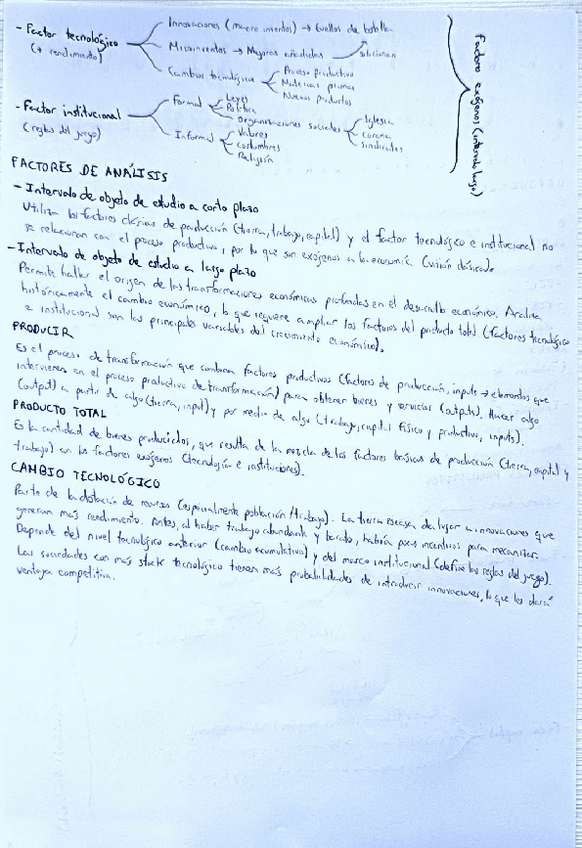 - Factor tecnológico
(+ rendimiento)
Innovaciones (macro inventos) → Cuellos de botella
Microinventos → Mejoras añadidas → solucionan
Cambios tecnológicos
Proceso productivo
Materias primas
Nuevos productos
- Factor institucional
(reglas del juego)
Formal
Leyes
Política
Organizaciones sociales
Iglesia
Corona
Sindicatos
Informal
Valores
Costumbres
Religión
Factores exógenos (intervalo largo)
FACTORES DE ANÁLISIS
- Intervalo de objeto de estudio a corto plazo
Utiliza los factores clásicos de producción (tierra, trabajo, capital) y el factor tecnológico e institucional no
se relacionan con el proceso productivo, por lo que son exógenos a la economía. (visión clásica).
- Intervalo de objeto de estudio a largo plazo
Permite hallar el origen de las transformaciones económicas profundas en el desarrollo económico. Analiza
históricamente el cambio económico, lo que requiere ampliar los factores del producto total (factores tecnológico
e institucional son las principales variables del crecimiento económico).
PRODUCIR
Es el proceso de transformación que combina factores productivos (factores de producción, inputs → elementos que
intervienen en el proceso productivo de transformación) para obtener bienes y servicios (outputs). Hacer algo
(output) a partir de algo (tierra, input) y por medio de algo (trabajo, capital físico y productivo, inputs).
PRODUCTO TOTAL
Es la cantidad de bienes producidos, que resulta de la mezcla de los factores básicos de producción (tierra, capital y
trabajo) con los factores exógenos (tecnología e instituciones).
CAMBIO TECNOLÓGICO
Parte de la dotación de recursos (especialmente población/trabajo). La tierra escasa da lugar a innovaciones que
generan más rendimiento. Antes, al haber trabajo abundante y barato, habría pocos incentivos para mecanizar.
Depende del nivel tecnológico anterior (cambio acumulativo) y del marco institucional (define las reglas del juego).
Las sociedades con más stock tecnológico tienen más probabilidades de introducir innovaciones, lo que les dará
ventaja competitiva.